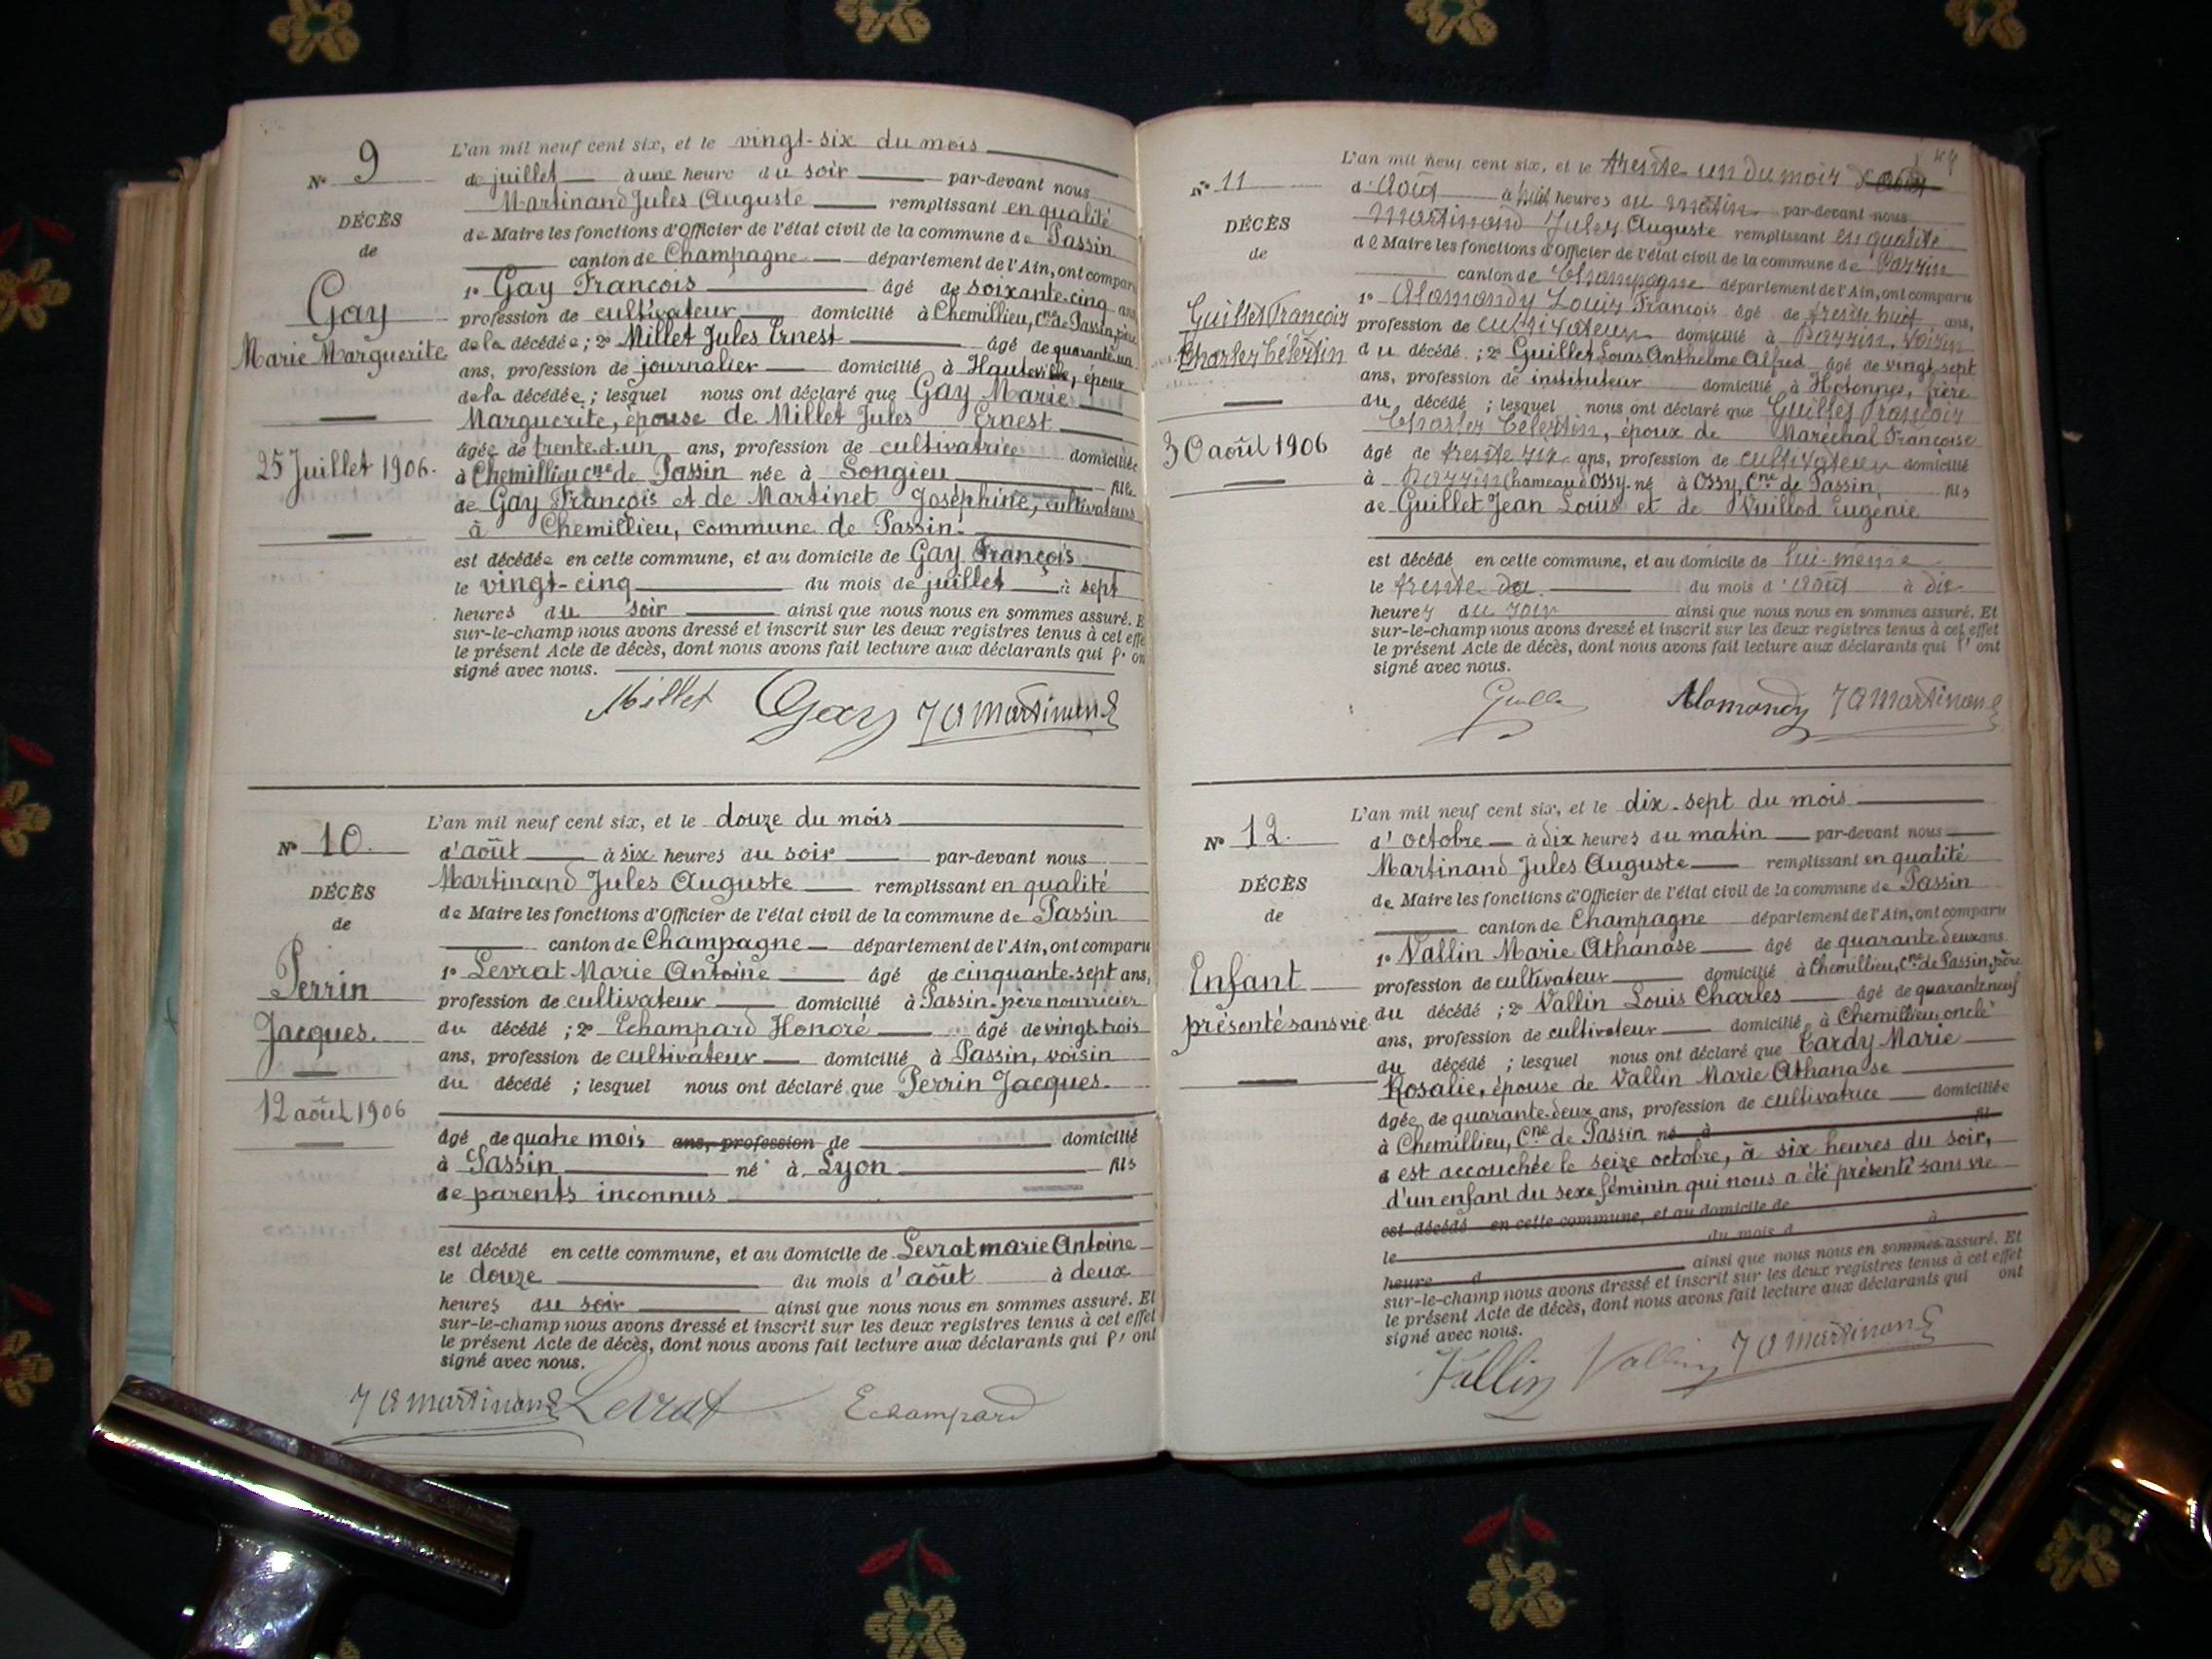 N° 9
DÉCÈS
de
Gay
Marie Marguerite
25 Juillet 1906.
L'an mil neuf cent six, et le vingt-six du mois
de juillet à une heure du soir par-devant nous
Martinand Jules Auguste remplissant en qualité
de Maire les fonctions d'Officier de l'état civil de la commune de Passin
canton de Champagne département de l'Ain, ont comparu
1° Gay François âgé de soixante-cinq ans,
profession de cultivateur domicilié à Chemillieu, Cne de Passin, père
de la décédée; 2° Millet Jules Ernest âgé de quarante-un
ans, profession de journalier domicilié à Hauteville, époux
de la décédée; lesquel nous ont déclaré que Gay Marie
Marguerite, épouse de Millet Jules Ernest
âgée de trente-et-un ans, profession de cultivatrice domiciliée
à Chemillieu Cne de Passin née à Songieu fille
de Gay François et de Martinet Joséphine, cultivateurs
à Chemillieu, commune de Passin.
est décédée en cette commune, et au domicile de Gay François
le vingt-cinq du mois de juillet à sept
heures du soir ainsi que nous nous en sommes assuré. Et
sur-le-champ nous avons dressé et inscrit sur les deux registres tenus à cet effet
le présent Acte de décès, dont nous avons fait lecture aux déclarants qui l'ont
signé avec nous.
Millet Gay J A Martinand
N° 10.
DÉCÈS
de
Perrin
Jacques.
12 août 1906
L'an mil neuf cent six, et le douze du mois
d'août à six heures du soir par-devant nous
Martinand Jules Auguste remplissant en qualité
de Maire les fonctions d'Officier de l'état civil de la commune de Passin
canton de Champagne département de l'Ain, ont comparu
1° Levrat Marie Antoine âgé de cinquante-sept ans,
profession de cultivateur domicilié à Passin, père nourricier
du décédé; 2° Echampard Honoré âgé de vingt-trois
ans, profession de cultivateur domicilié à Passin, voisin
du décédé; lesquel nous ont déclaré que Perrin Jacques.
âgé de quatre mois ans, profession de domicilié
à Passin né à Lyon fils
de parents inconnus
est décédé en cette commune, et au domicile de Levrat marie Antoine
le douze du mois d'août à deux
heures du soir ainsi que nous nous en sommes assuré. Et
sur-le-champ nous avons dressé et inscrit sur les deux registres tenus à cet effet
le présent Acte de décès, dont nous avons fait lecture aux déclarants qui l'ont
signé avec nous.
J A Martinand Levrat Echampard
N° 11
DÉCÈS
de
Guillet François
Charles Célestin
30 août 1906
L'an mil neuf cent six, et le trente un du mois
d'Août à huit heures du matin par-devant nous
Martinand Jules Auguste remplissant en qualité
de Maire les fonctions d'Officier de l'état civil de la commune de Passin
canton de Champagne département de l'Ain, ont comparu
1° Alomandy Louis François âgé de trente huit ans,
profession de cultivateur domicilié à Passin, voisin
du décédé; 2° Guillet Louis Anthelme Alfred âgé de vingt sept
ans, profession de instituteur domicilié à Hotonnes, frère
du décédé; lesquel nous ont déclaré que Guillet François
Charles Célestin, époux de Maréchal Françoise
âgé de trente six ans, profession de cultivateur domicilié
à Passin (hameau d'Ossy. né à Ossy, Cne de Passin, fils
de Guillet Jean Louis et de Vuillod Eugénie
est décédé en cette commune, et au domicile de lui-même
le trente du mois d'Août à dix
heures du soir ainsi que nous nous en sommes assuré. Et
sur-le-champ nous avons dressé et inscrit sur les deux registres tenus à cet effet
le présent Acte de décès, dont nous avons fait lecture aux déclarants qui l'ont
signé avec nous.
Alomandy J A Martinand
N° 12.
DÉCÈS
de
Enfant
présenté sans vie
L'an mil neuf cent six, et le dix-sept du mois
d'octobre à dix heures du matin par-devant nous
Martinand Jules Auguste remplissant en qualité
de Maire les fonctions d'Officier de l'état civil de la commune de Passin
canton de Champagne département de l'Ain, ont comparu
1° Vallin Marie Athanase âgé de quarante-deux ans.
profession de cultivateur domicilié à Chemillieu, Cne de Passin, père
du décédé; 2° Vallin Louis Charles âgé de quarante neuf
ans, profession de cultivateur domicilié à Chemillieu, oncle
du décédé; lesquel nous ont déclaré que Tardy Marie
Rosalie, épouse de Vallin Marie Athanase
âgée de quarante-deux ans, profession de cultivatrice domiciliée
à Chemillieu, Cne de Passin né à fil
a est accouchée le seize octobre, à six heures du soir,
d'un enfant du sexe féminin qui nous a été présenté sans vie
est décédé en cette commune, et au domicile de
le du mois d à
heure d ainsi que nous nous en sommes assuré. Et
sur-le-champ nous avons dressé et inscrit sur les deux registres tenus à cet effet
le présent Acte de décès, dont nous avons fait lecture aux déclarants qui ont
signé avec nous.
Vallin Vallin J A Martinand